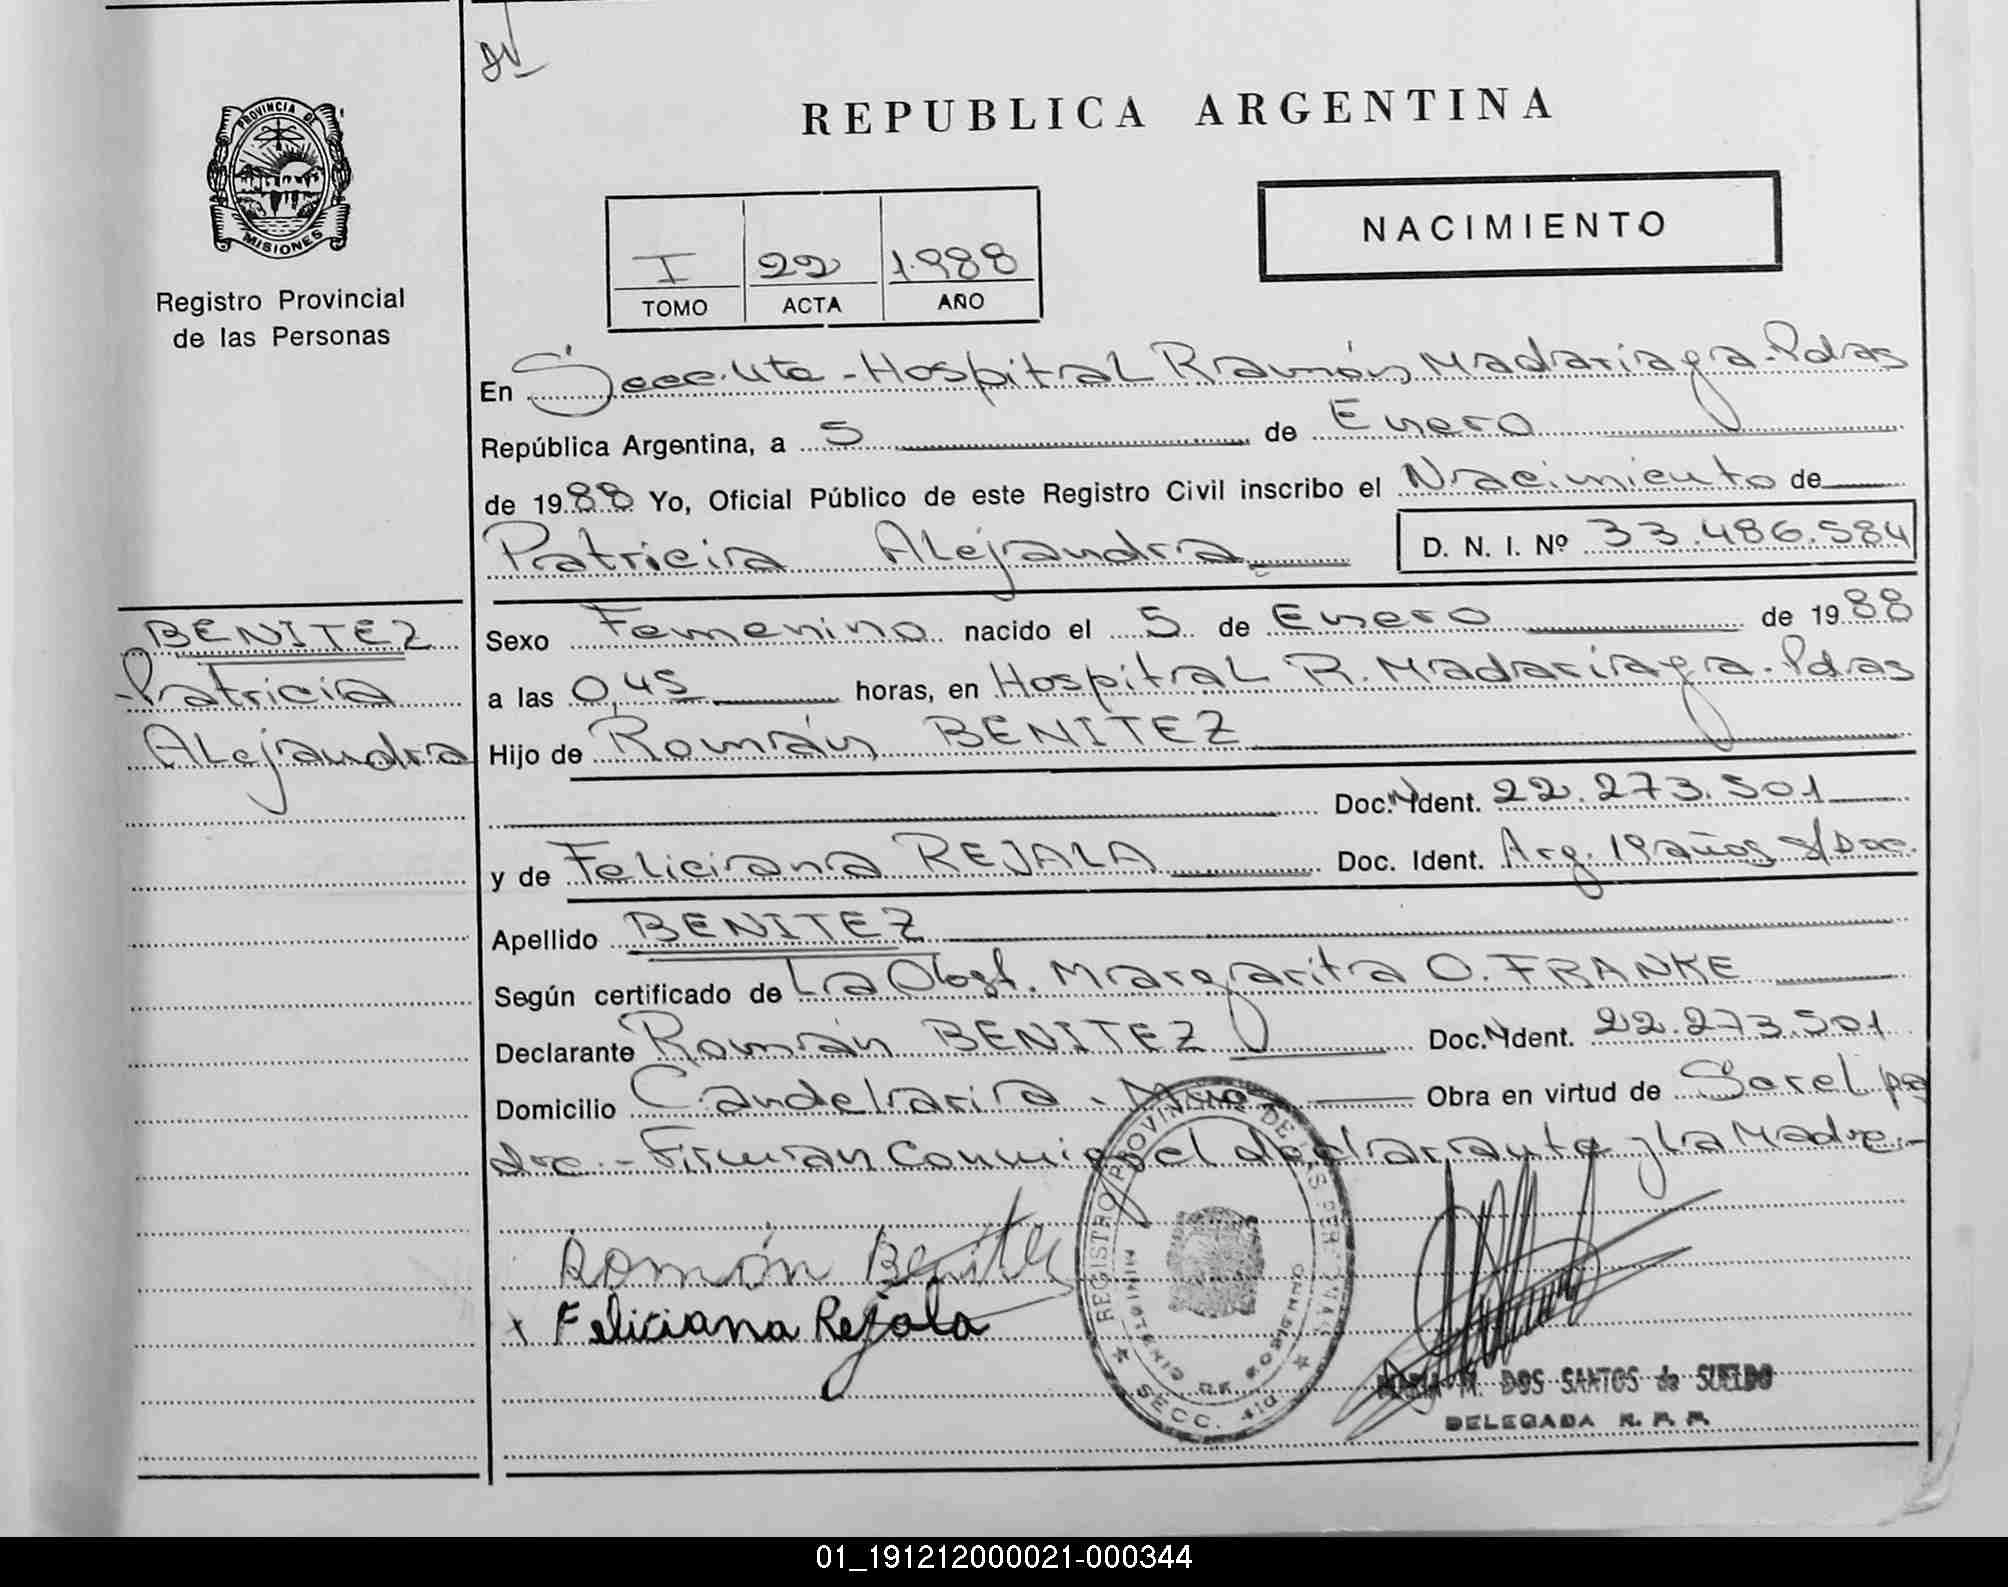 REPUBLICA ARGENTINA
PROVINCIA DE
MISIONES
Registro Provincial
de las Personas
NACIMIENTO
I 22 1.988
TOMO ACTA AÑO
En Secc. 4ta - Hospital Ramón Madariaga - Pdas
República Argentina, a 5 de Enero
de 1988 Yo, Oficial Público de este Registro Civil inscribo el Nacimiento de
Patricia Alejandra D. N. I. Nº 33.486.584
BENITEZ
Patricia
Alejandra
Sexo Femenino nacido el 5 de Enero de 1988
a las 0,45 horas, en Hospital R. Madariaga - Pdas
Hijo de Román BENITEZ
Doc. N Ident. 22.273.501
y de Feliciana REJALA Doc. Ident. Arg. 19 años s/Doc.
Apellido BENITEZ
Según certificado de La Obst. Margarita O. FRANKE
Declarante Román BENITEZ Doc. N Ident. 22.273.501
Domicilio Candelaria - Mnes Obra en virtud de Ser el pa
dre.- Firman conmigo el declarante y la Madre.-
Román Benitez
x Feliciana Rejala
REGISTRO PROVINCIAL DE LAS PERSONAS
MINISTERIO DE GOBIERNO
SECC. 4ta
M. DOS SANTOS de SUELDO
DELEGADA R. P. P.
01_191212000021-000344